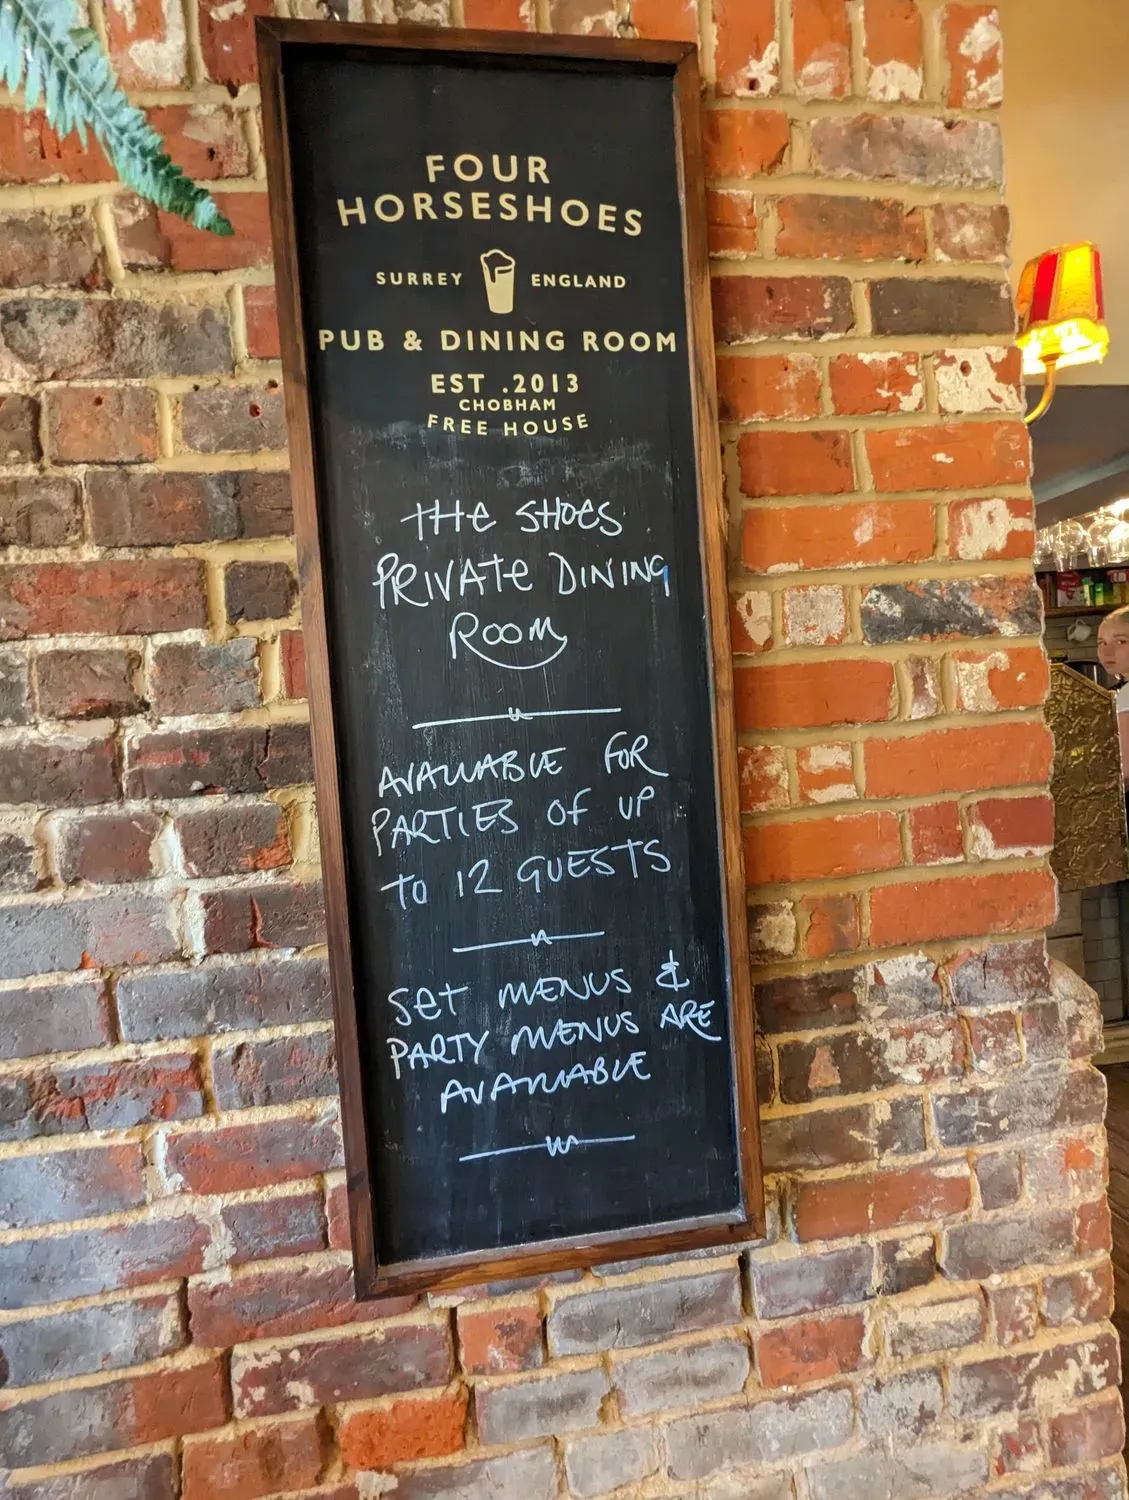 FOUR
HORSESHOES
SURREY ENGLAND
PUB & DINING ROOM
EST .2013
CHOBHAM
FREE HOUSE
THE SHOES
PRIVATE DINING
ROOM
AVAILABLE FOR
PARTIES OF UP
TO 12 GUESTS
SET MENUS &
PARTY MENUS ARE
AVAILABLE